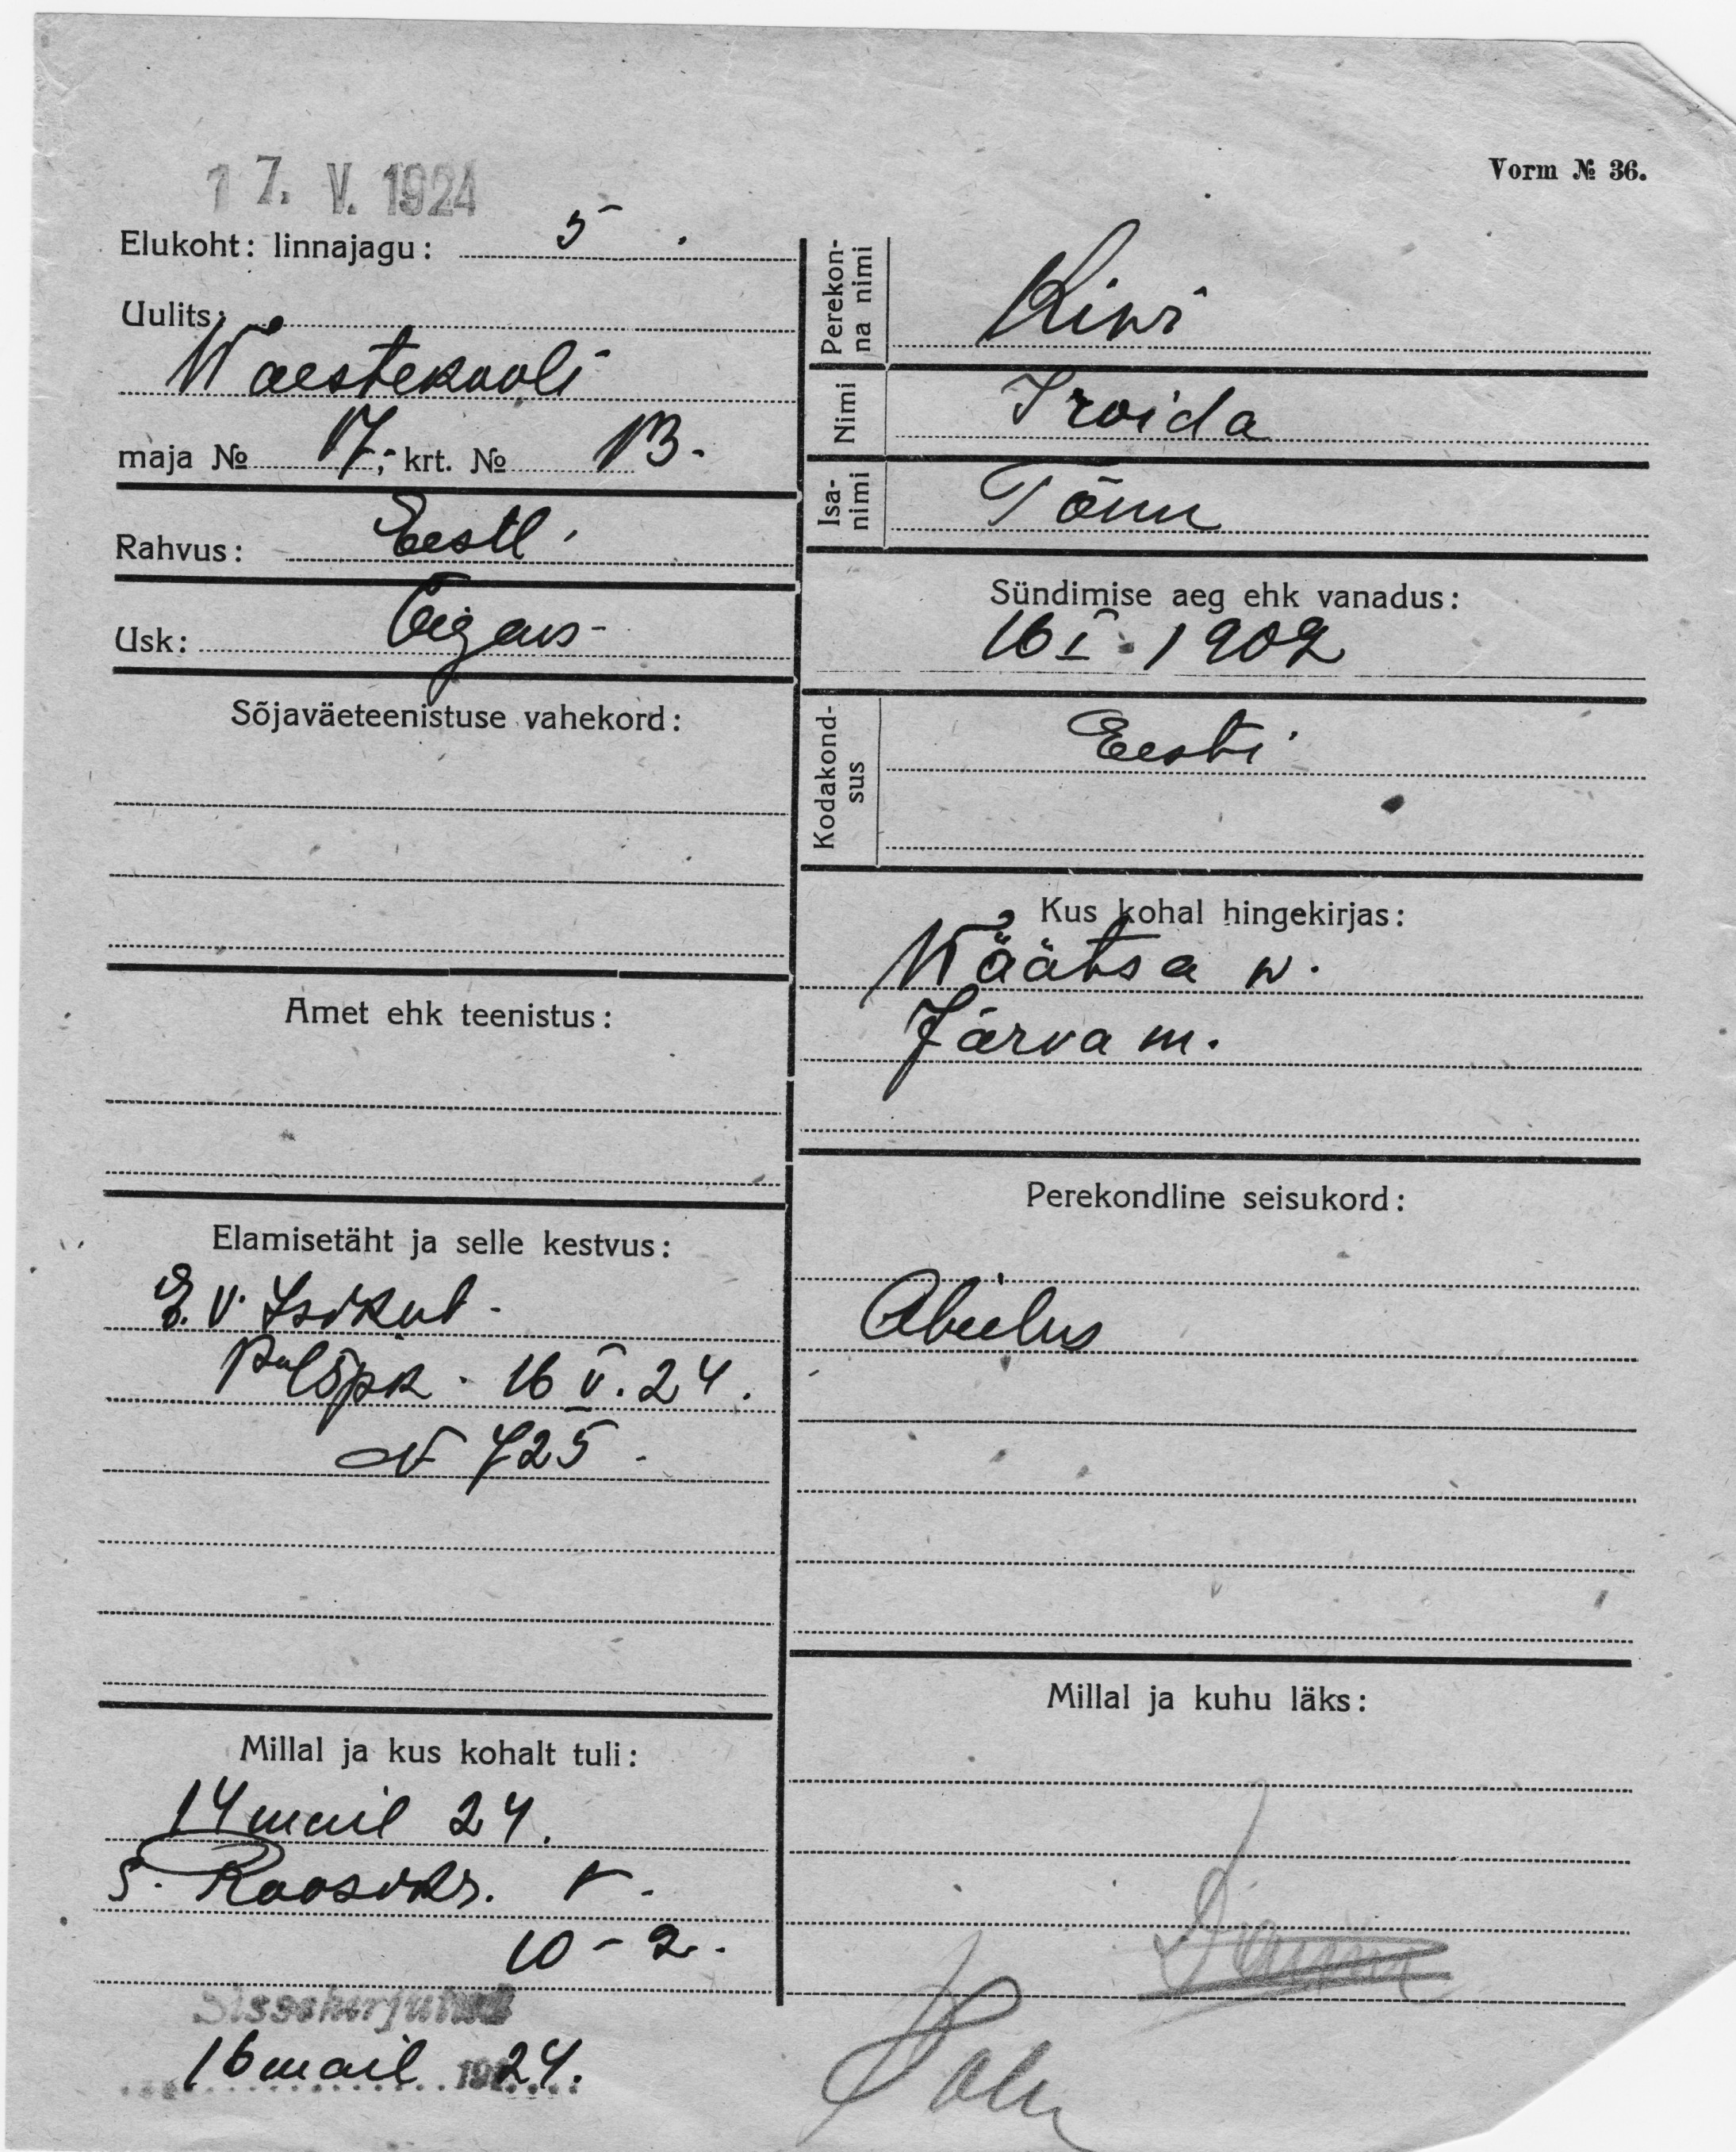 17. V. 1924
Vorm № 36.
Elukoht: linnajagu: 5.
Uulits:
Waestekooli
maja № 17; krt. № 13.
Rahvus: Eestl.
Usk: Õigeus
Sõjaväeteenistuse vahekord:
Amet ehk teenistus:
Elamisetäht ja selle kestvus:
E. V. Isikut.
16 V. 24.
N 725.
Millal ja kus kohalt tuli:
14 mail 24.
S. Roosikr.
10 - 2.
Sissekirjutud
16 mail 1924.
Perekonna nimi
Kiwi
Nimi
Iroida
Isanimi
Tõnu
Sündimise aeg ehk vanadus:
16 I. 1902
Kodakondsus
Eesti
Kus kohal hingekirjas:
Wäätsa w.
Järva m.
Perekondline seisukord:
Abielus
Millal ja kuhu läks: